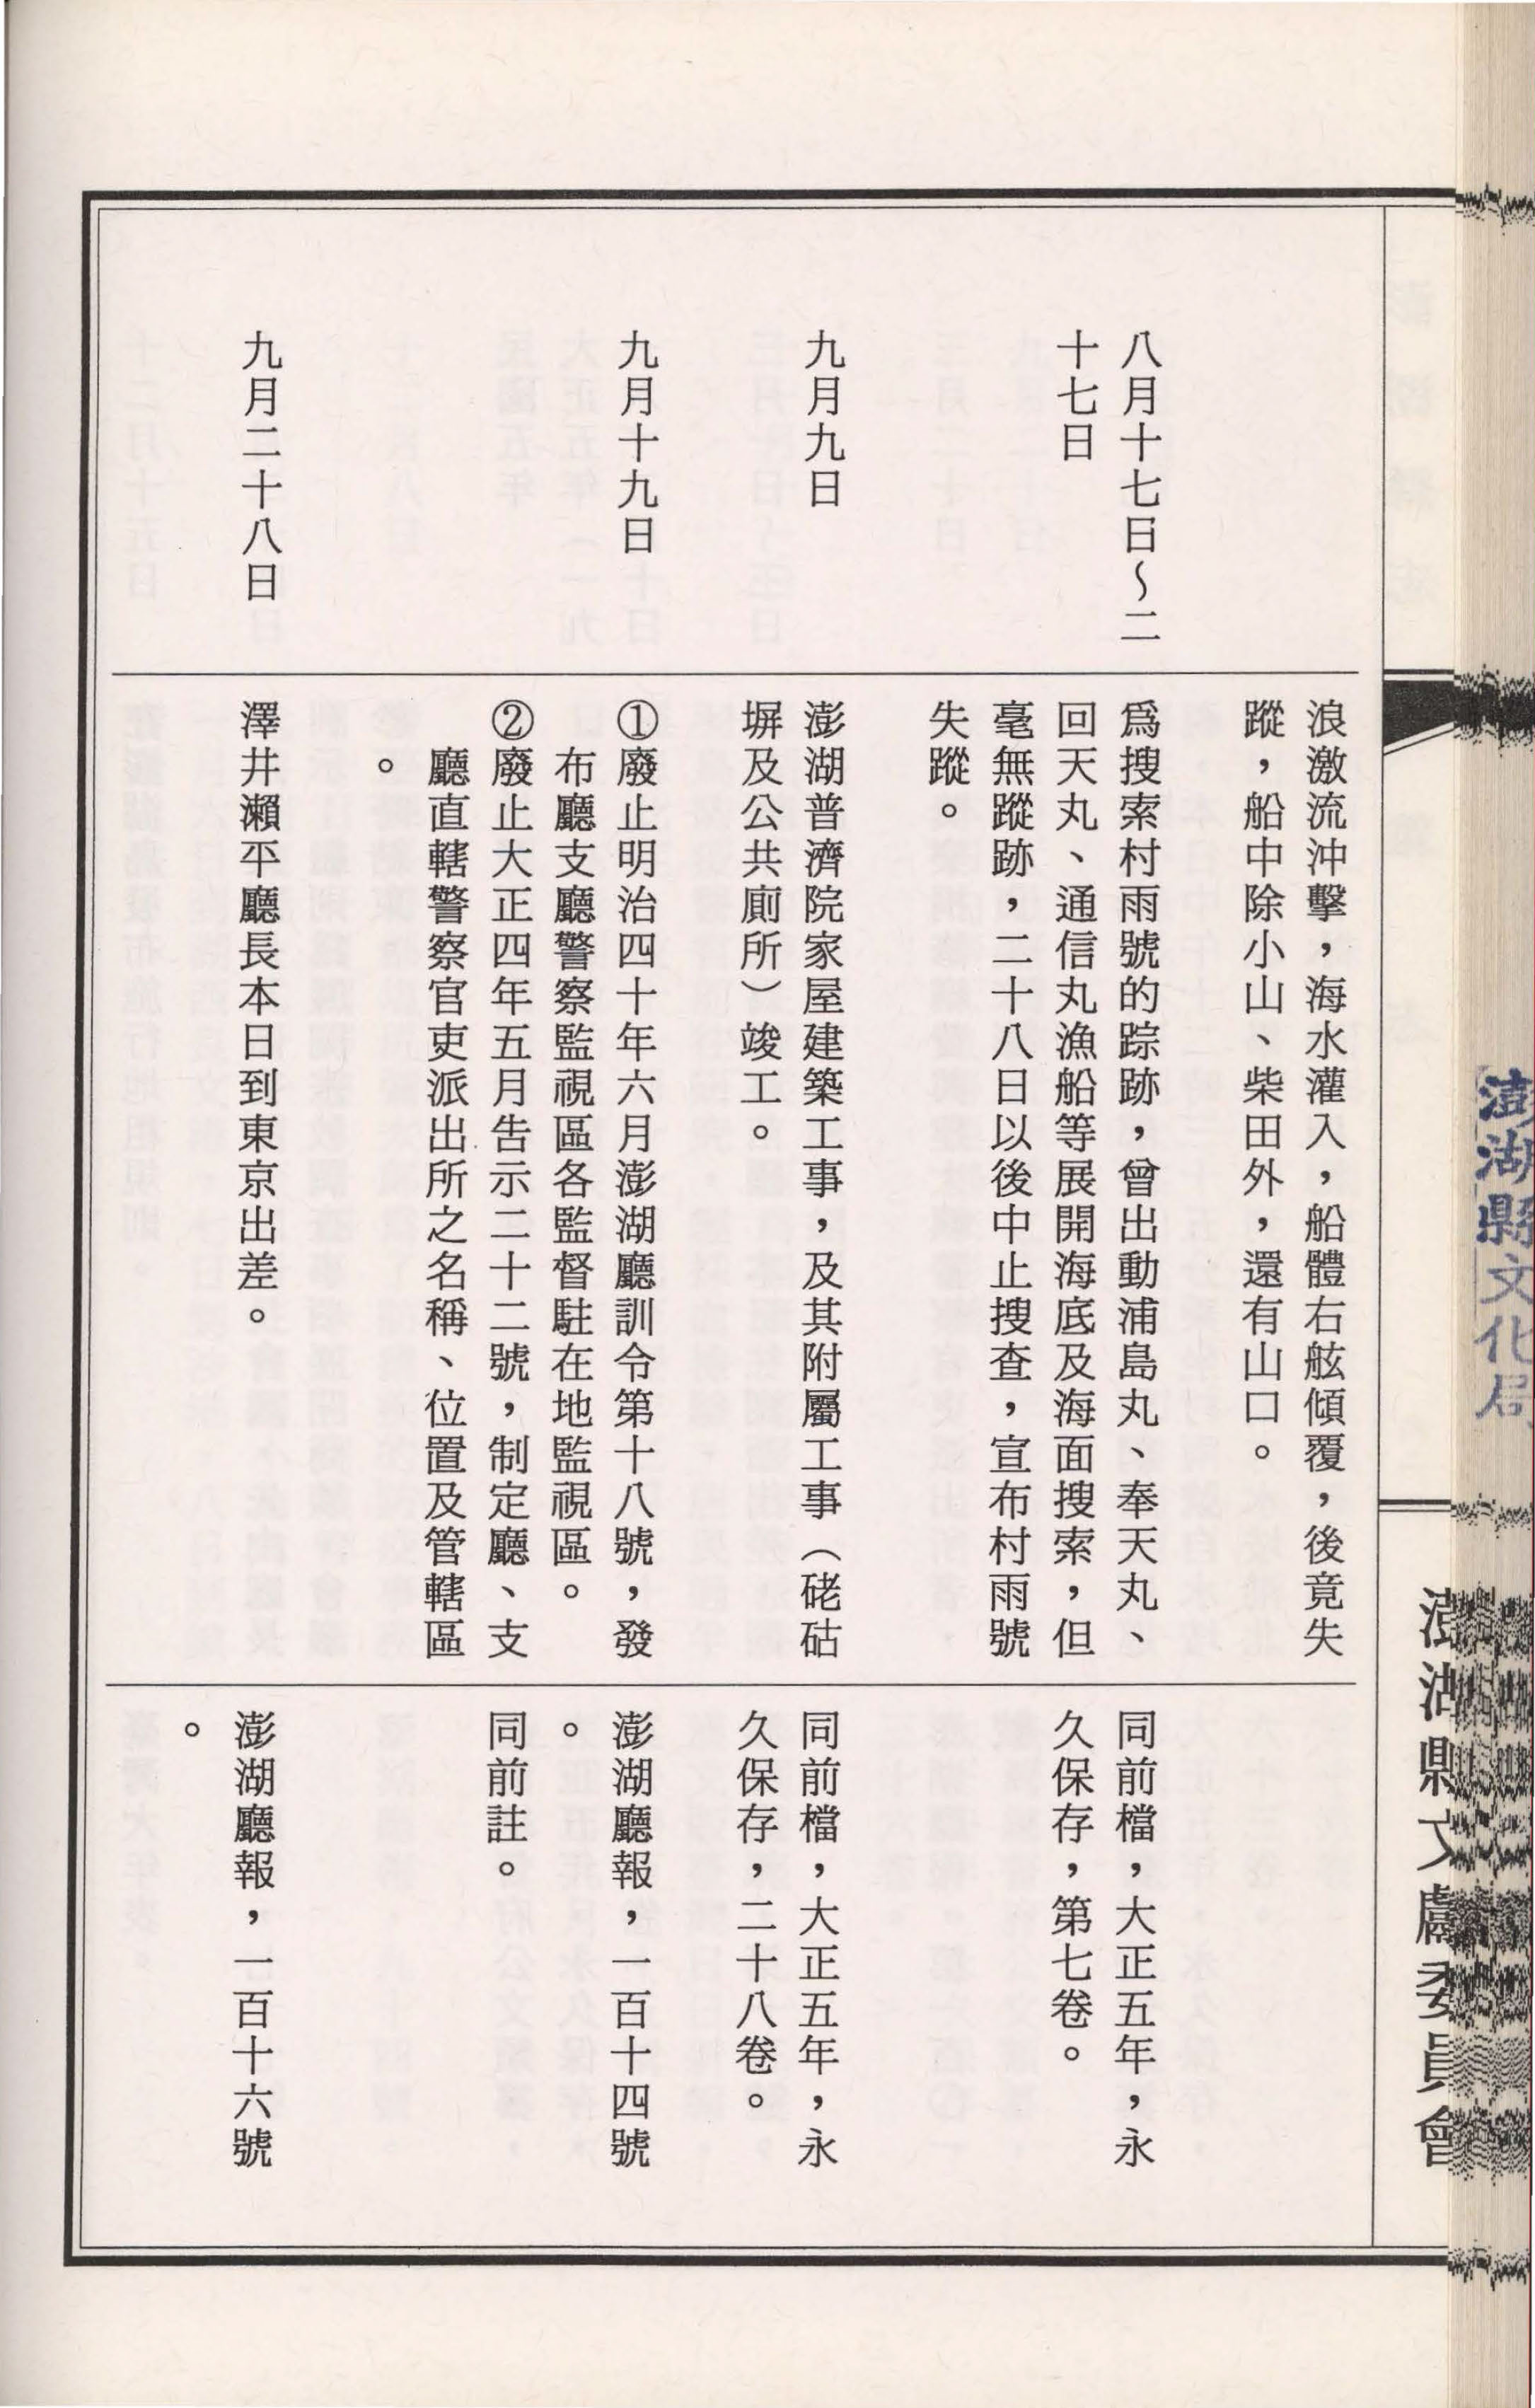 澎湖縣文化局
澎湖縣文獻委員會
浪激流沖擊，海水灌入，船體右舷傾覆，後竟失
蹤，船中除小山、柴田外，還有山口。
八月十七日～二
十七日
爲搜索村雨號的踪跡，曾出動浦島丸、奉天丸、
回天丸、通信丸漁船等展開海底及海面搜索，但
毫無蹤跡，二十八日以後中止搜查，宣布村雨號
失蹤。
同前檔，大正五年，永
久保存，第七卷。
九月九日
澎湖普濟院家屋建築工事，及其附屬工事（硓𥑮
塀及公共廁所）竣工。
同前檔，大正五年，永
久保存，二十八卷。
九月十九日
①廢止明治四十年六月澎湖廳訓令第十八號，發
布廳支廳警察監視區各監督駐在地監視區。
澎湖廳報，一百十四號
。
②廢止大正四年五月告示二十二號，制定廳、支
廳直轄警察官吏派出所之名稱、位置及管轄區
。
同前註。
九月二十八日
澤井瀨平廳長本日到東京出差。
澎湖廳報，一百十六號
。